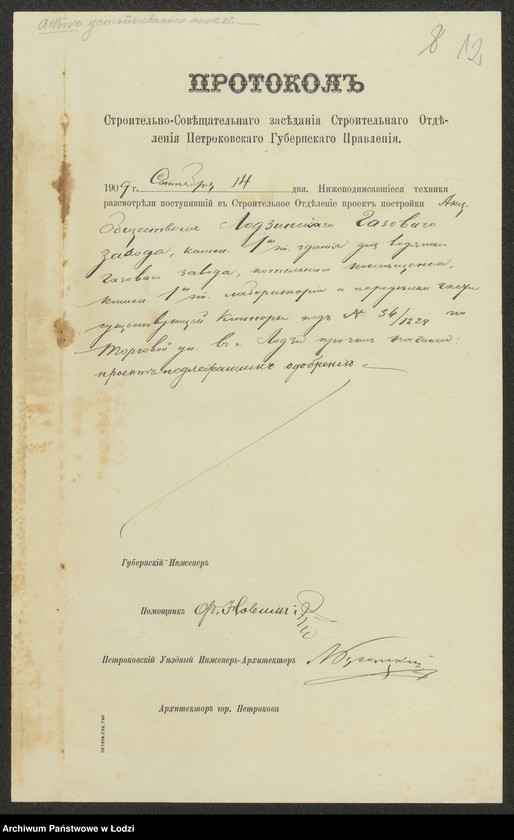 8 12
ПРОТОКОЛЪ
Строительно-Совѣщательнаго засѣданія Строительнаго Отдѣ-
ленія Петроковскаго Губернскаго Правленія.
1909 г. Сентября 14 дня. Нижеподписавшіеся техники
разсмотрѣли поступившій въ Строительное Отдѣленіе проектъ постройки Акц.
Обществомъ Лодзинскаго Газоваго
завода, камен. 1но эт. зданія для водянаго
газоваго завода, котельнаго помѣщенія,
камен. 1но эт. лабораторіи и передѣлки части
существующей Конторы подъ № 34/1229 по
Торговой ул. въ г. Лодзи причемъ
проектъ подлежащимъ одобренію
Губернскій Инженеръ
Помощникъ
Петроковскій Уѣздный Инженеръ-Архитекторъ
Архитекторъ гор. Петрокова
ПЕТРОК.ГУБ.ТИП
Archiwum Państwowe w Łodzi